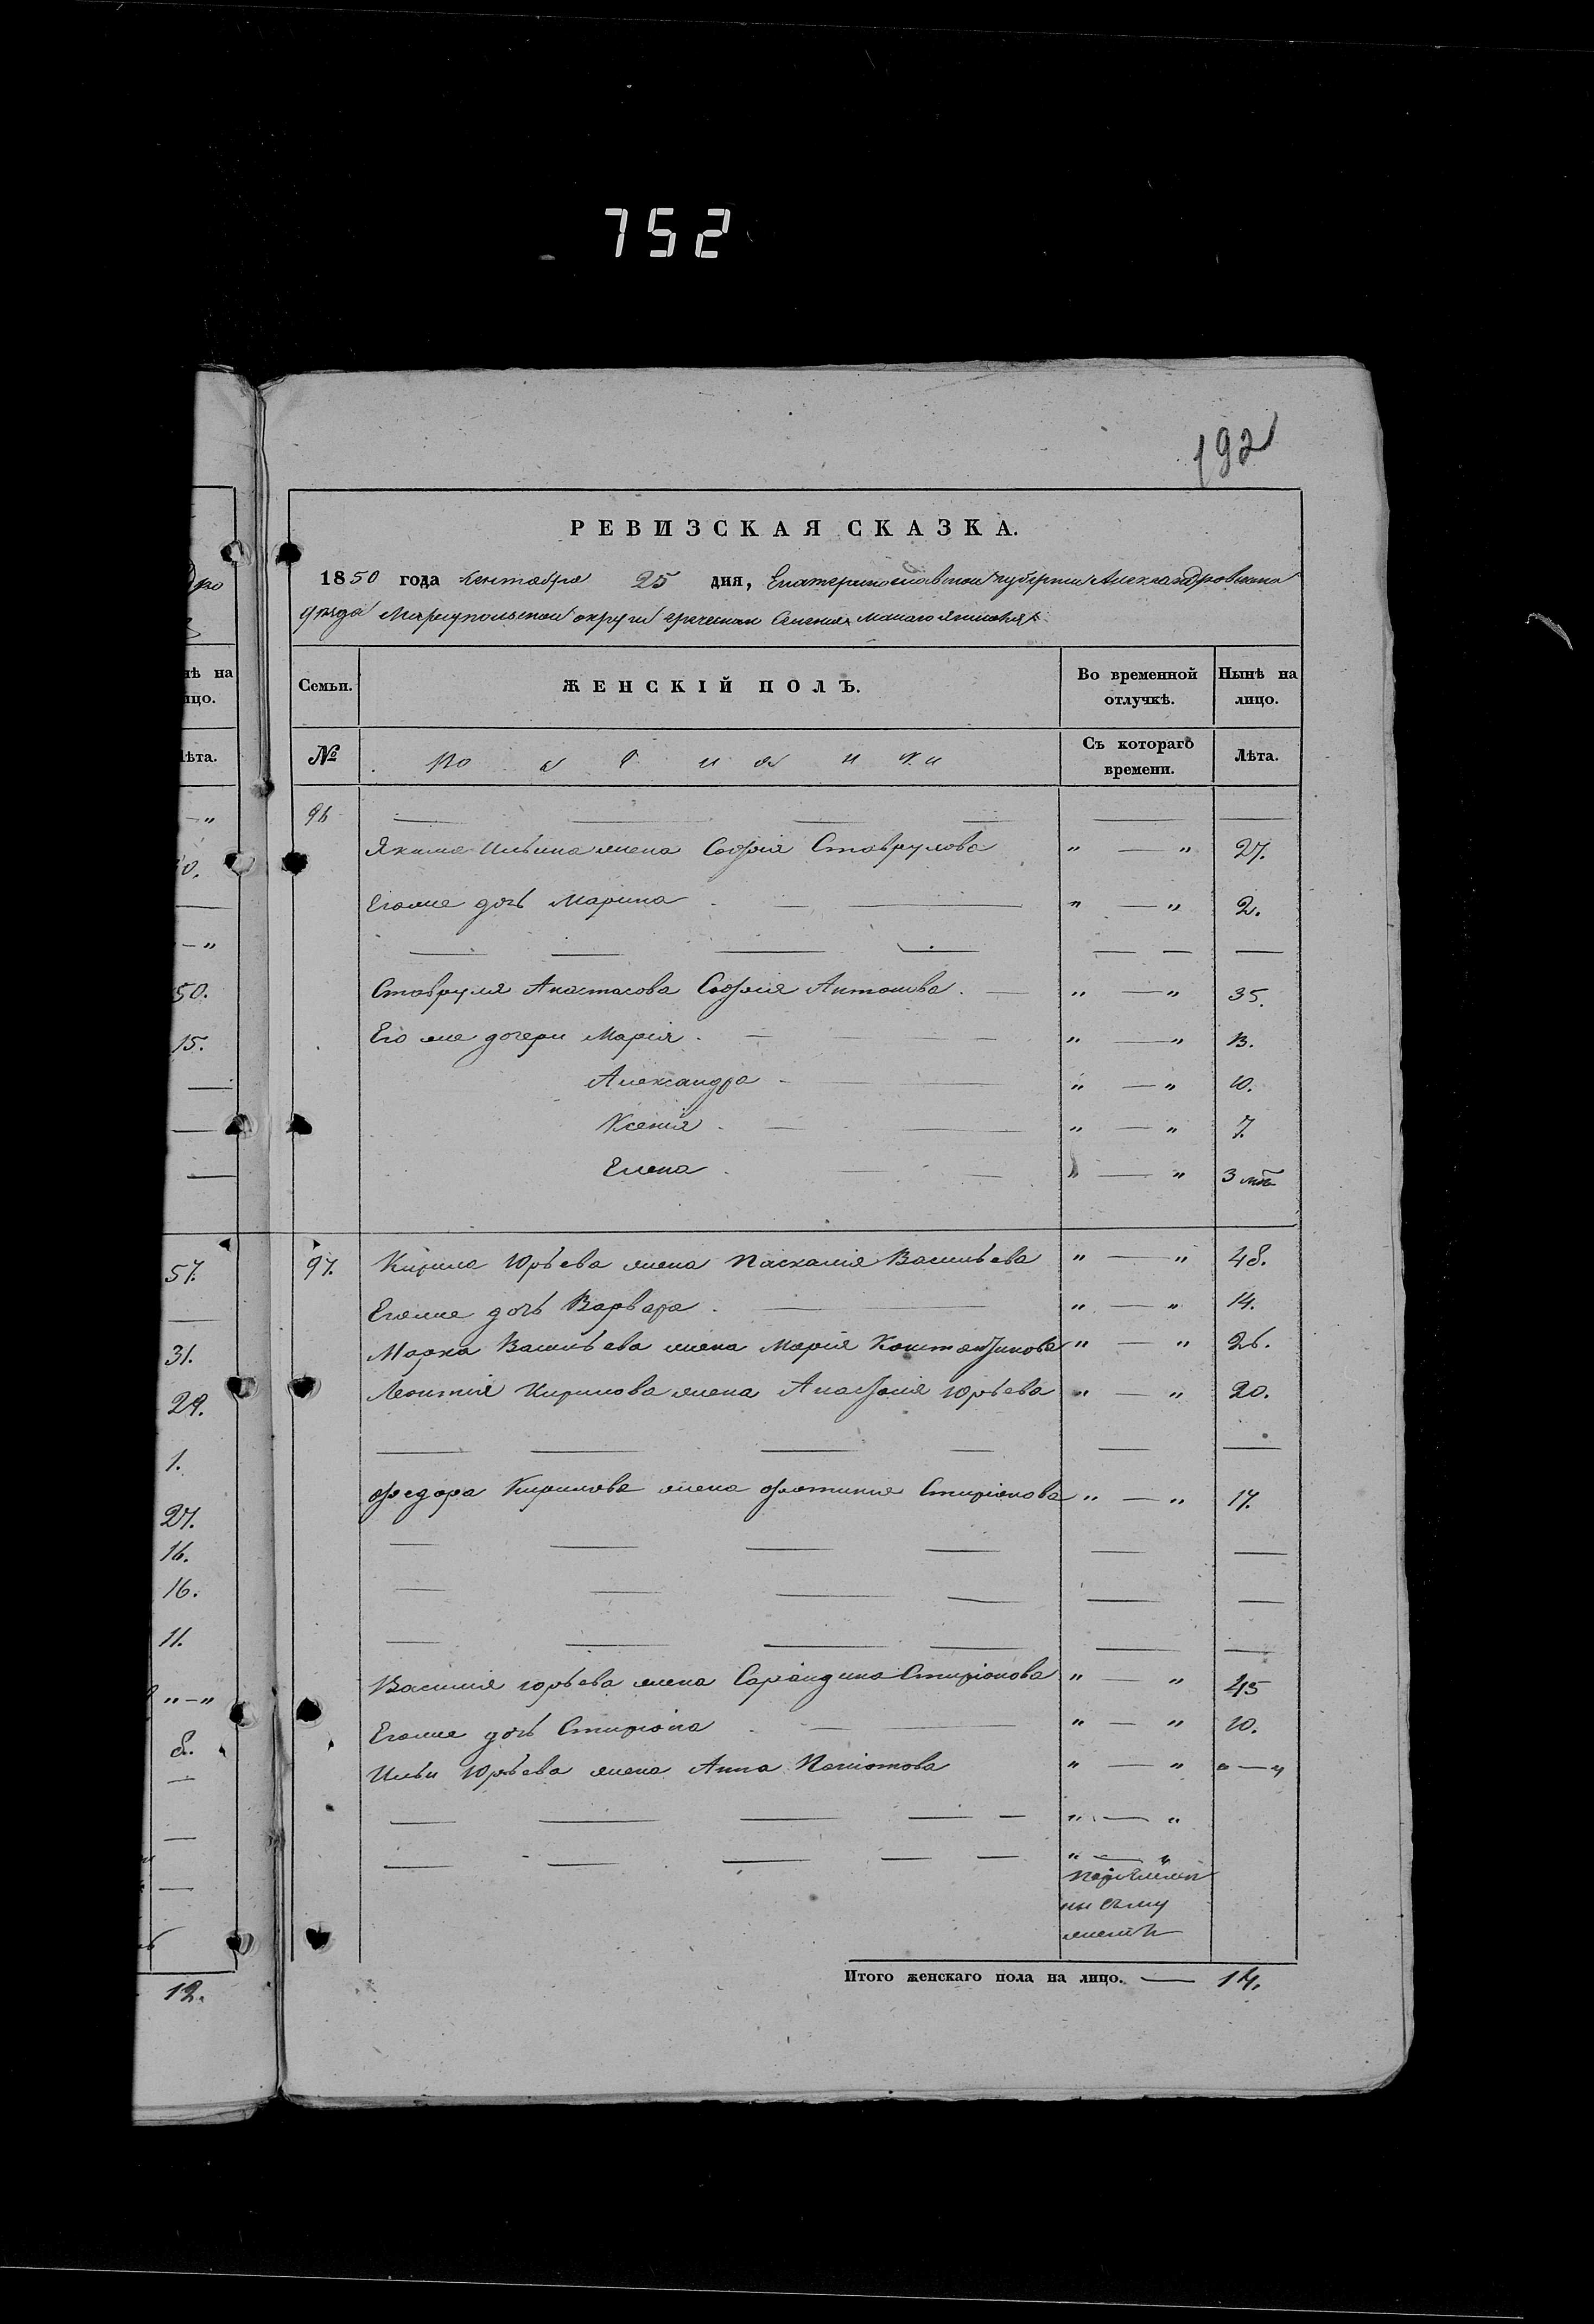 752
192
РЕВИЗСКАЯ СКАЗКА.
1850 года сентября 25 дня, Екатеринославской губернии Александровскаго
уезда Мариупольской округи греческаго селения малаго Янисоля
нѣ на
ицо.
Семьи.
ЖЕНСКІЙ ПОЛЪ.
Во временной
отлучкѣ.
Нынѣ на
лицо.
лѣта.
№
Поселянки
Съ котораго
времени.
Лѣта.
96
Якима Ильина жена Софія Ставрулова " — " 27.
Егоже дочь Марина " — " 2.
50.
Ставруля Анастасова Софія Антонова. " — " 35.
15.
Его же дочери Марія. " — " 13.
Александра " — " 10.
Ксенія. " — " 7.
Елена. " — " 3 мѣ
57.
97. Кирила Юрьева жена Паскалія Васильева " — " 48.
Егоже дочь Варвара. " — " 14.
31.
Марка Васильева жена Марія Константинова " — " 26.
29.
Леонтія Кирилова жена Анастасія Юрьева " — " 20.
1.
Федора Кирилова жена Фотинія Стиріонова " — " 17.
27.
16.
16.
11.
Василія Юрьева жена Сарандина Стиріонова " — " 45
" — "
Егоже дочь Стиріона " — " 10.
8.
Ильи Юрьева жена Анна Паніотова " — " " — "
" — "
" — "
ны въ му
Итого женскаго пола на лицо. — 14.
12.